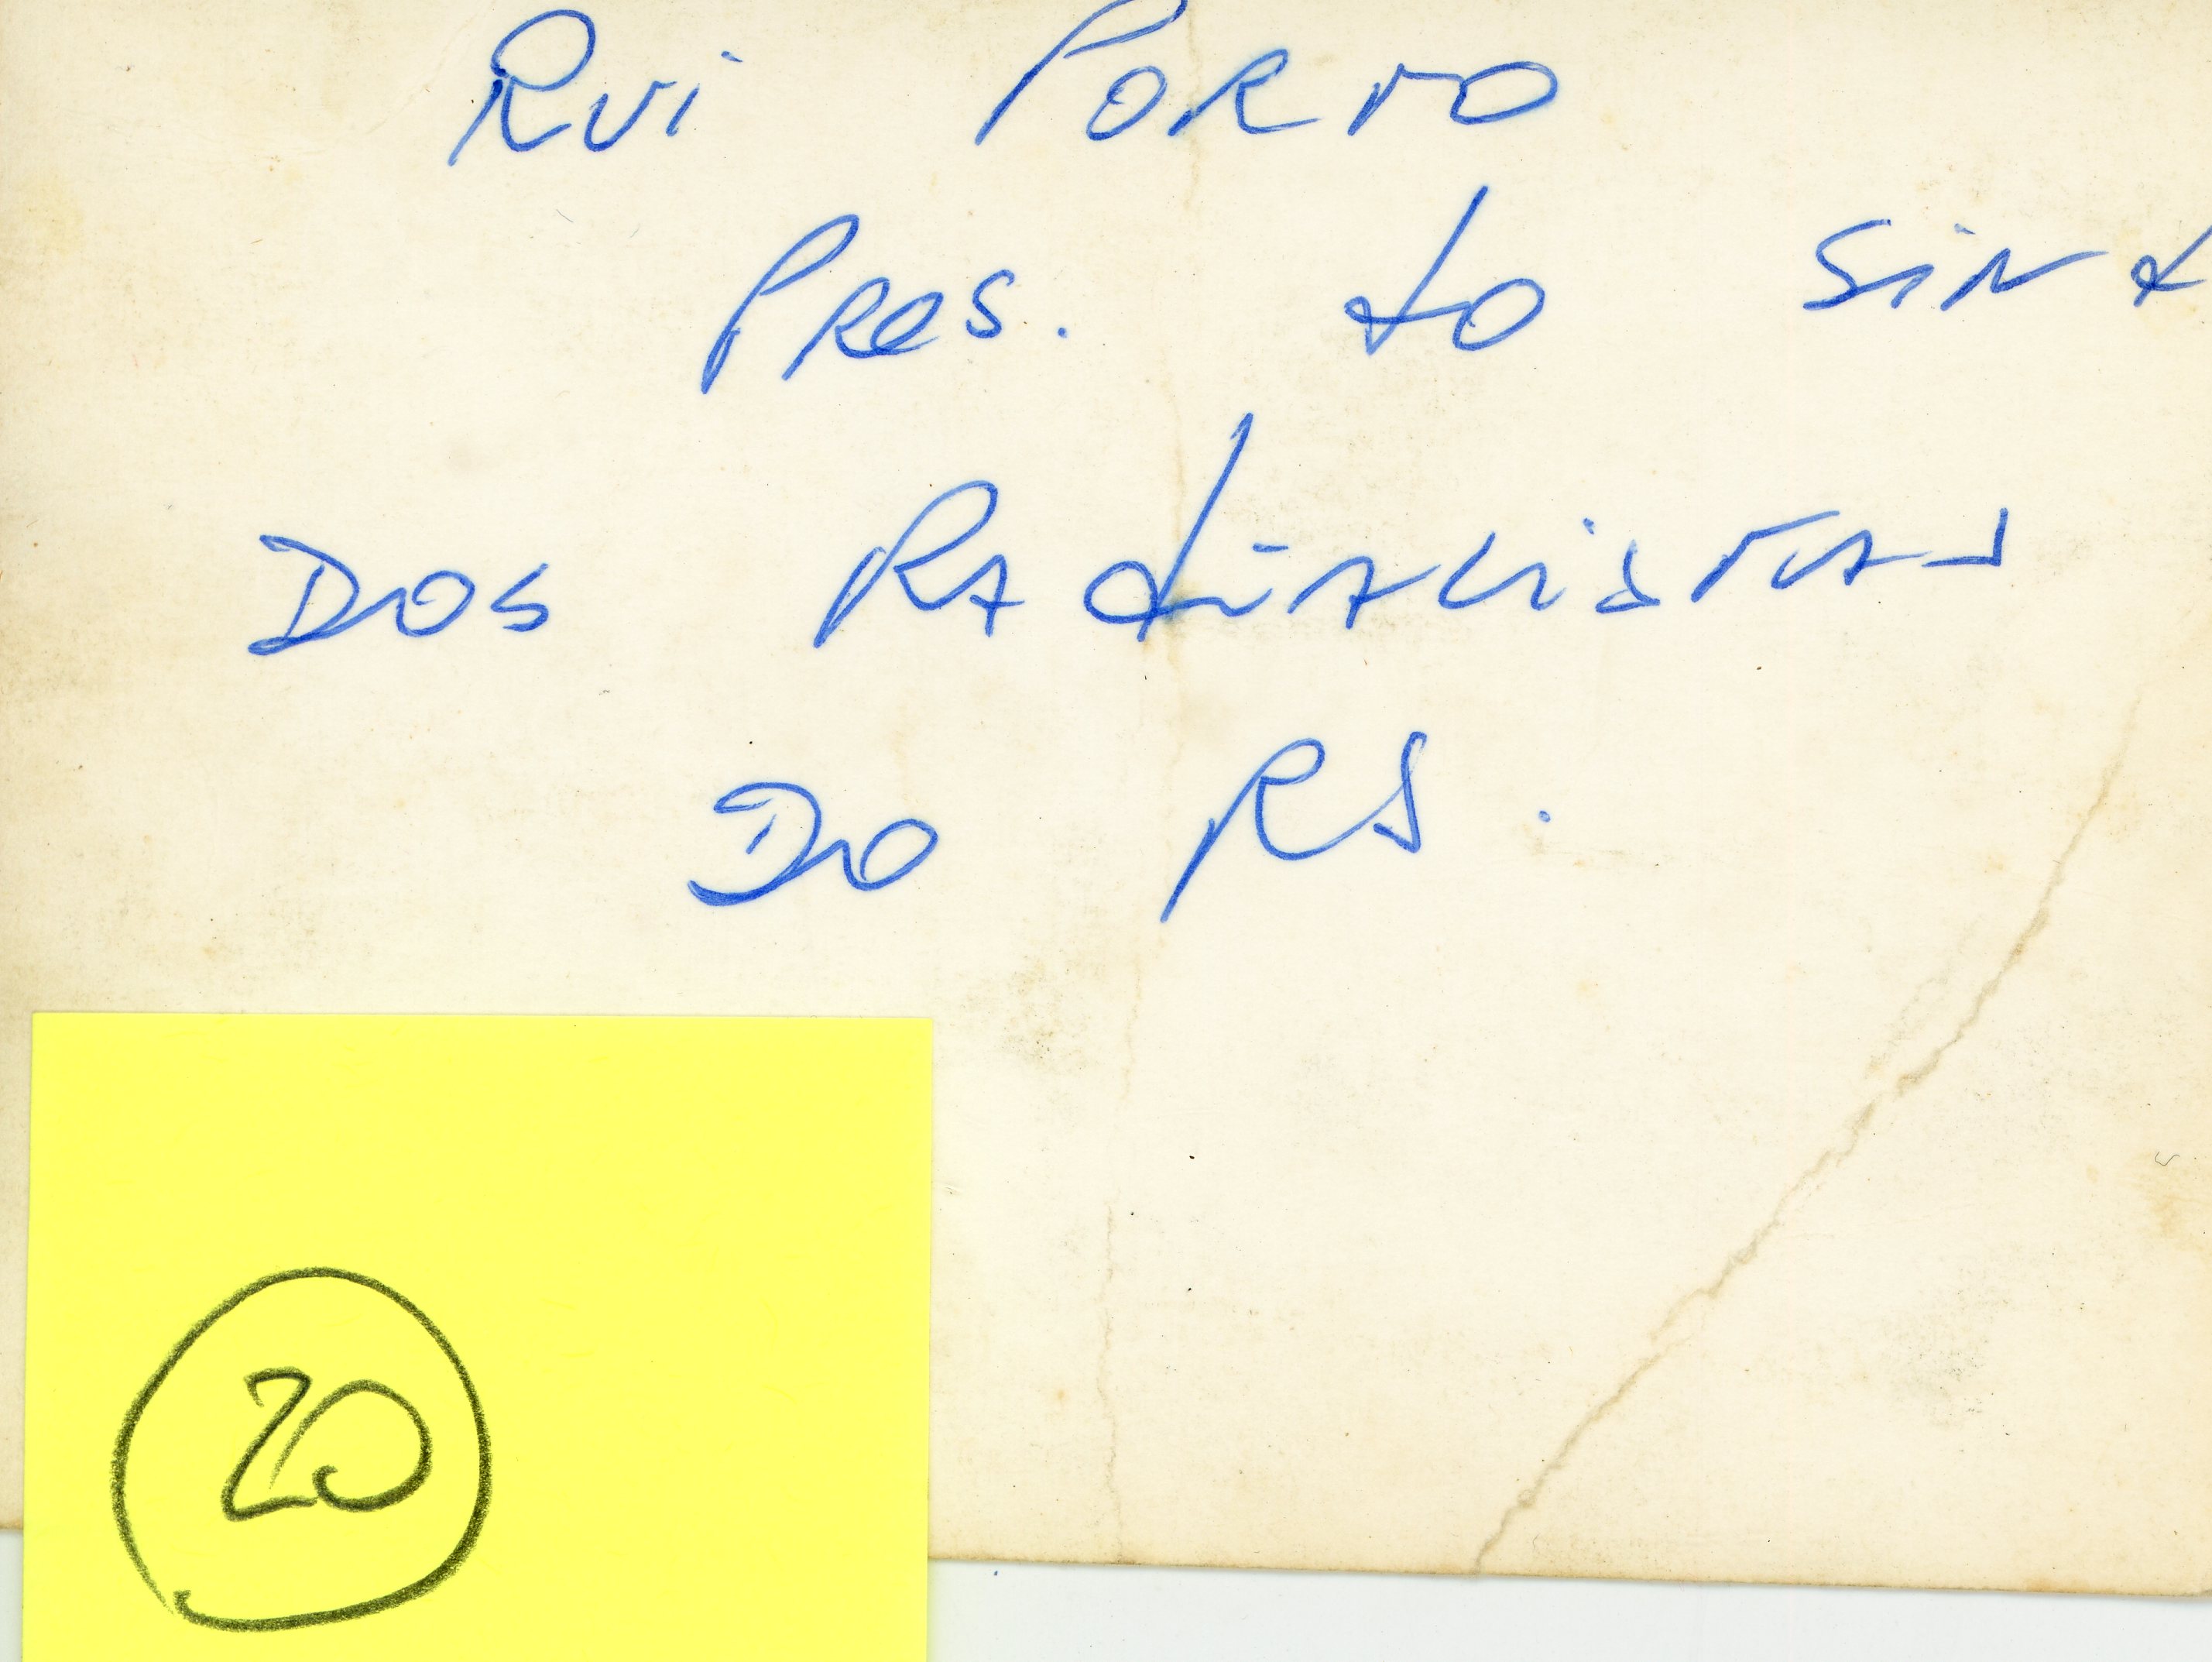 RUI PORTO
PRES. do SIND
DOS RAdiALISTAS
DO RS.
20